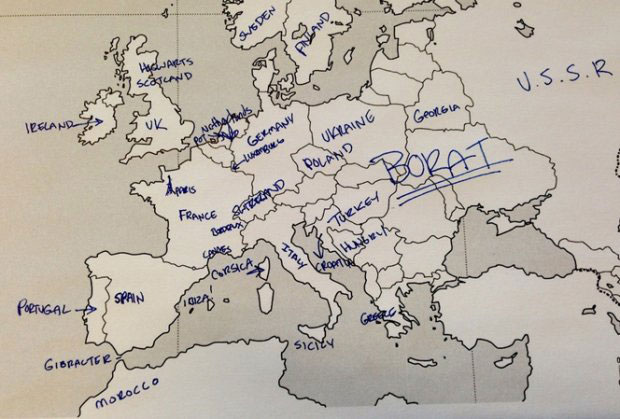 SWEDEN
FINLAND
U.S.S.R
HOGWARTS
SCOTLAND
IRELAND
UK
NETHERLANDS
POT
LAND
GERMANY
LUXEMBURG
UKRAINE
POLAND
GEORGIA
BORAT
PARIS
FRANCE
BORDEUX
CANNES
SWITZERLAND
TURKEY
HUNGRY
CROATIA
ITALY
CORSICA
IBIZA!
PORTUGAL
SPAIN
GREECE
GIBRALTER
SICILY
MOROCCO